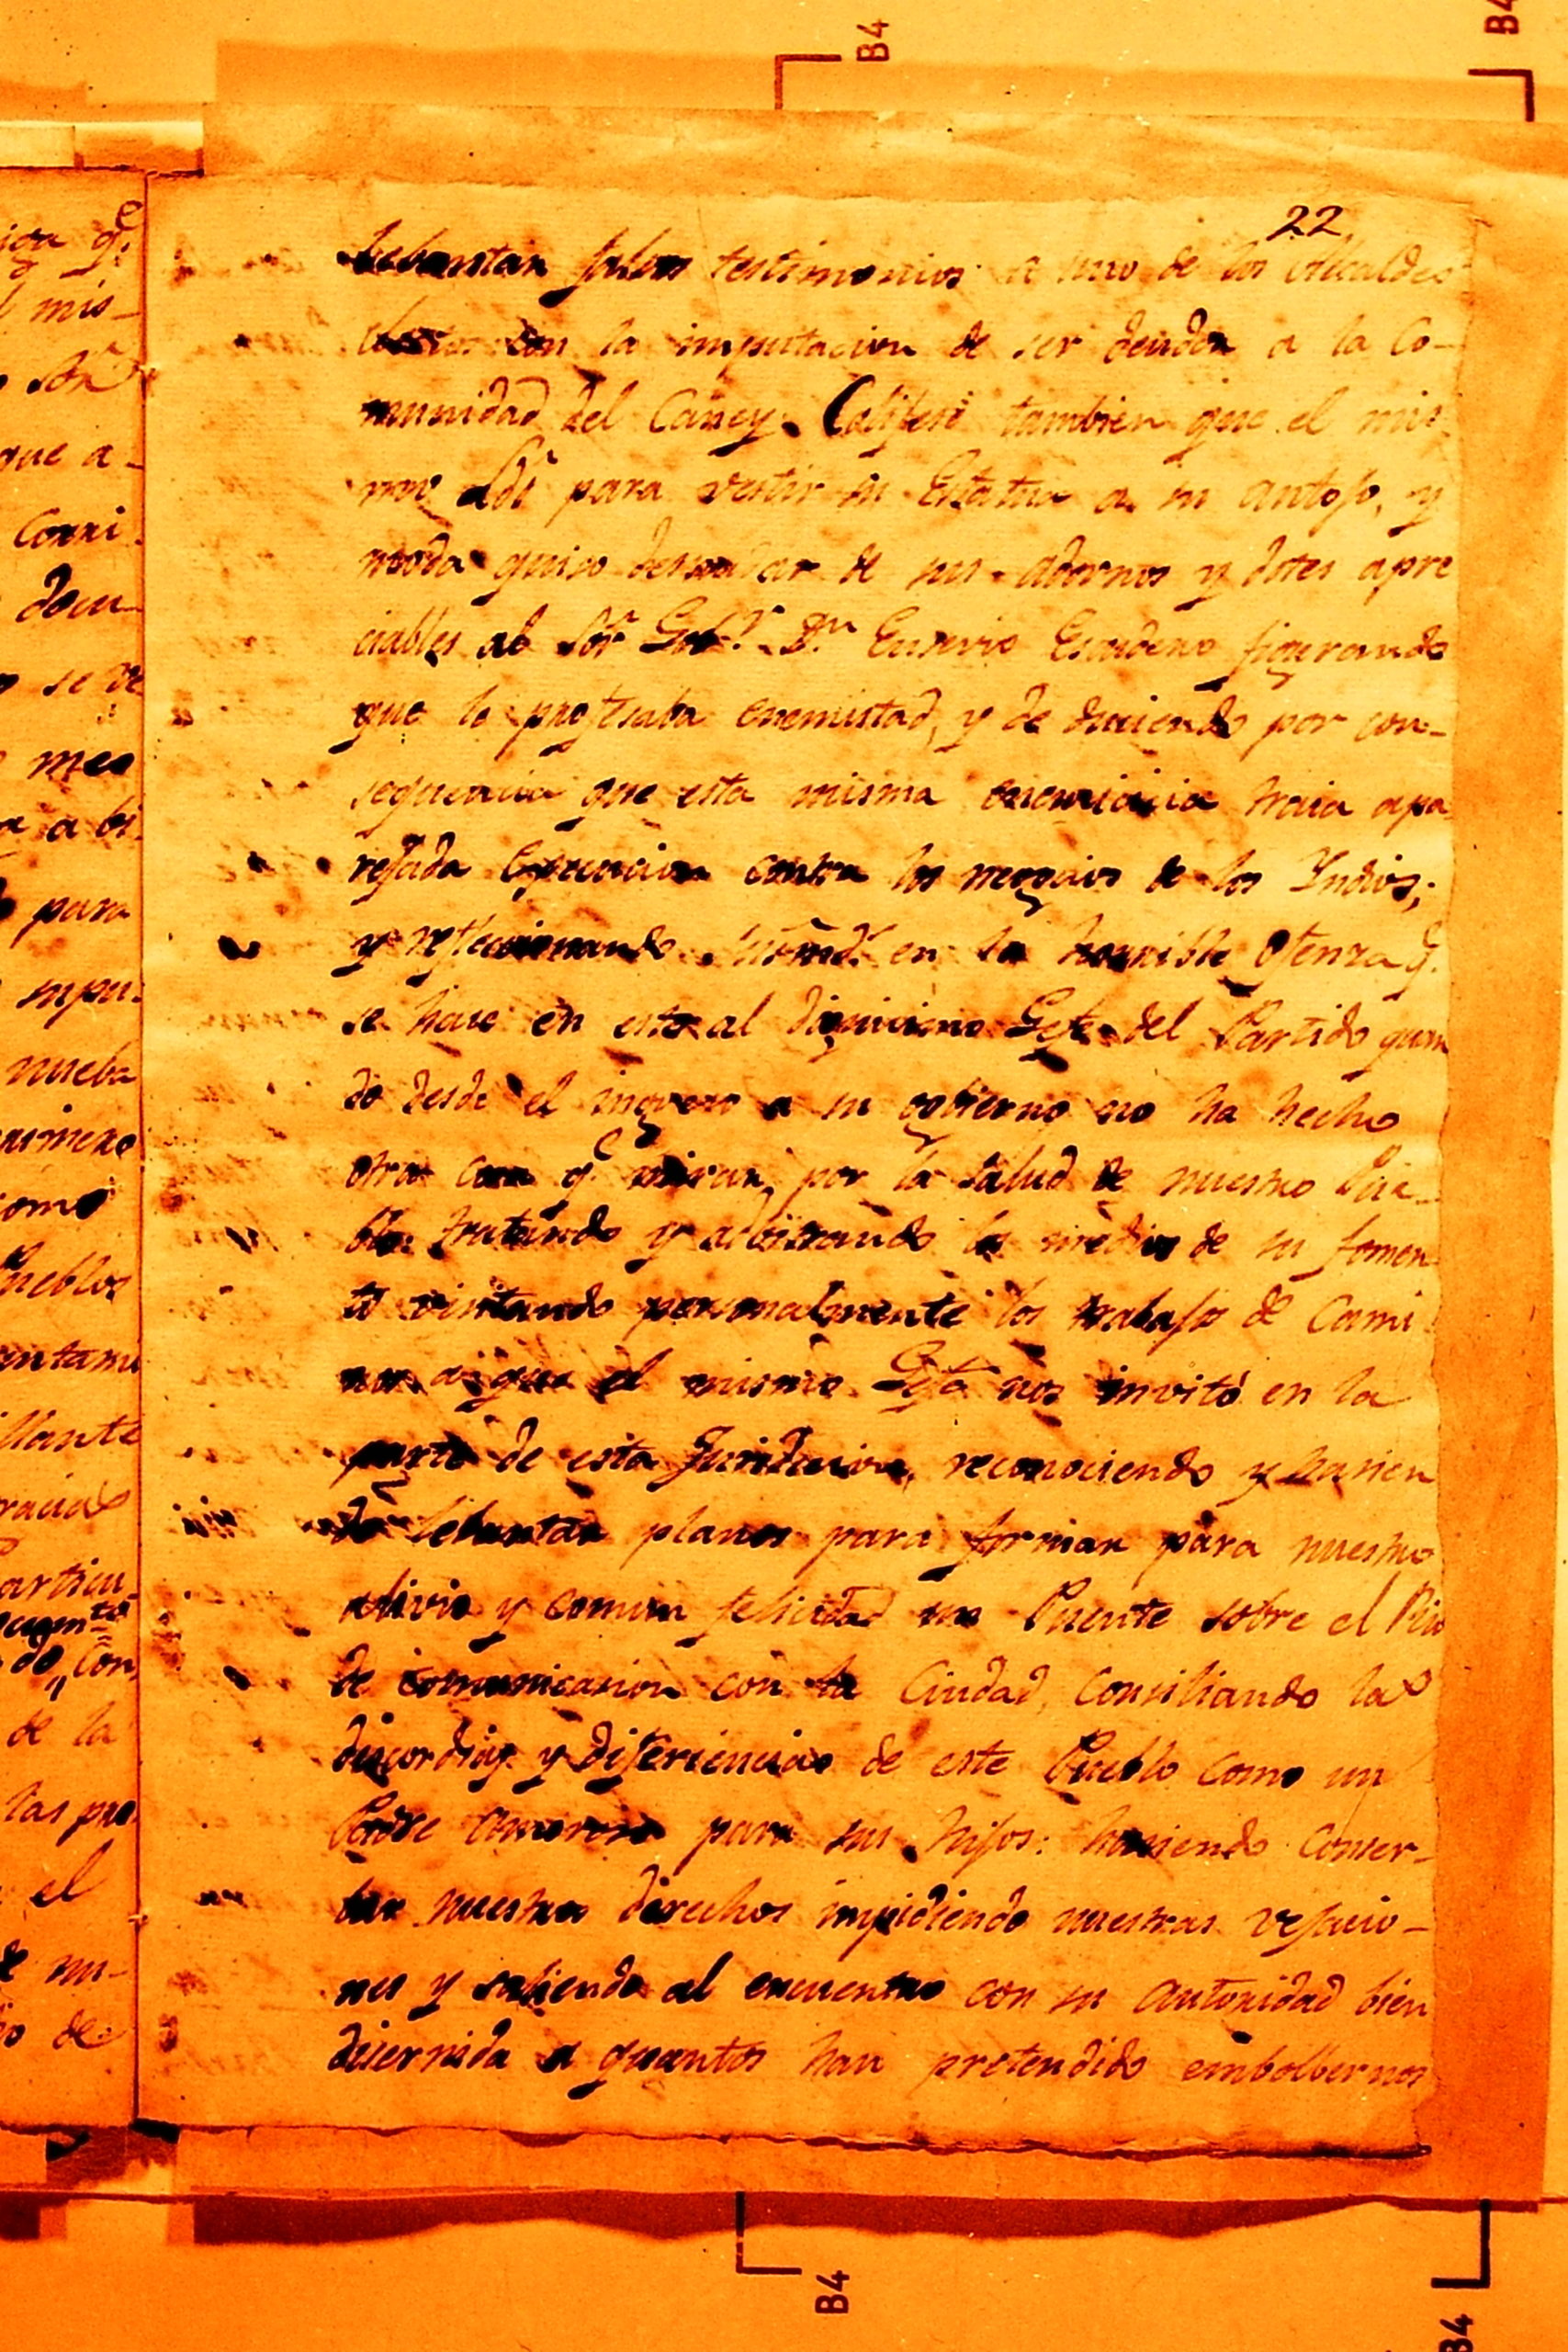 B4
B4
22
Lebantar falsos testimonios a uno de los Alcaldes
con la imputacion de ser deudor a la Co-
munidad del Caney. tambien que el mis-
mo para vestir su Estatua a su antojo, y
moda quiso desnudar de sus adornos y dotes apre
ciables al Sor Gobr. Dn Eusevio Escudero figurando
que le profesaba enemistad, y de duciendo por con-
sequencia que esta misma traia apa
rejada contra los negocios de los Yndios;
y reflecsionando en la horrible Ofenza q.
se hase en esto al dignisimo Gefe del Partido quan
do desde el ingreso a su gobierno no ha hecho
otra cosa qe mirar por la salud de nuestro Pue-
blo: tratando y arbitrando los medios de su fomen
to visitando personalmente los trabajos de Cami
nos a que el mismo Gefe nos invitó en la
parte de esta Juridicion, reconociendo y hasien
do lebantar planos para formar para nuestro
alivio y comun felicidad un Puente sobre el Rio
de comunicasion con la Ciudad, Consiliando las
discordias y diferiencias de este Pueblo como un
Padre amoroso para sus hijos: hasiendo Conser-
bar nuestros derechos impidiendo nuestras vejacio-
nes y saliendo al encuentro con su autoridad bien
dicernida a quantos han pretendido embolbernos
iga qe
mis-
que a-
Corri
docu-
se ve
mes
a bi
para
nueba
primero
como
Pueblos
llante
articu-
do,, con
de la
las pro
el
de nu-
de
B4
B4